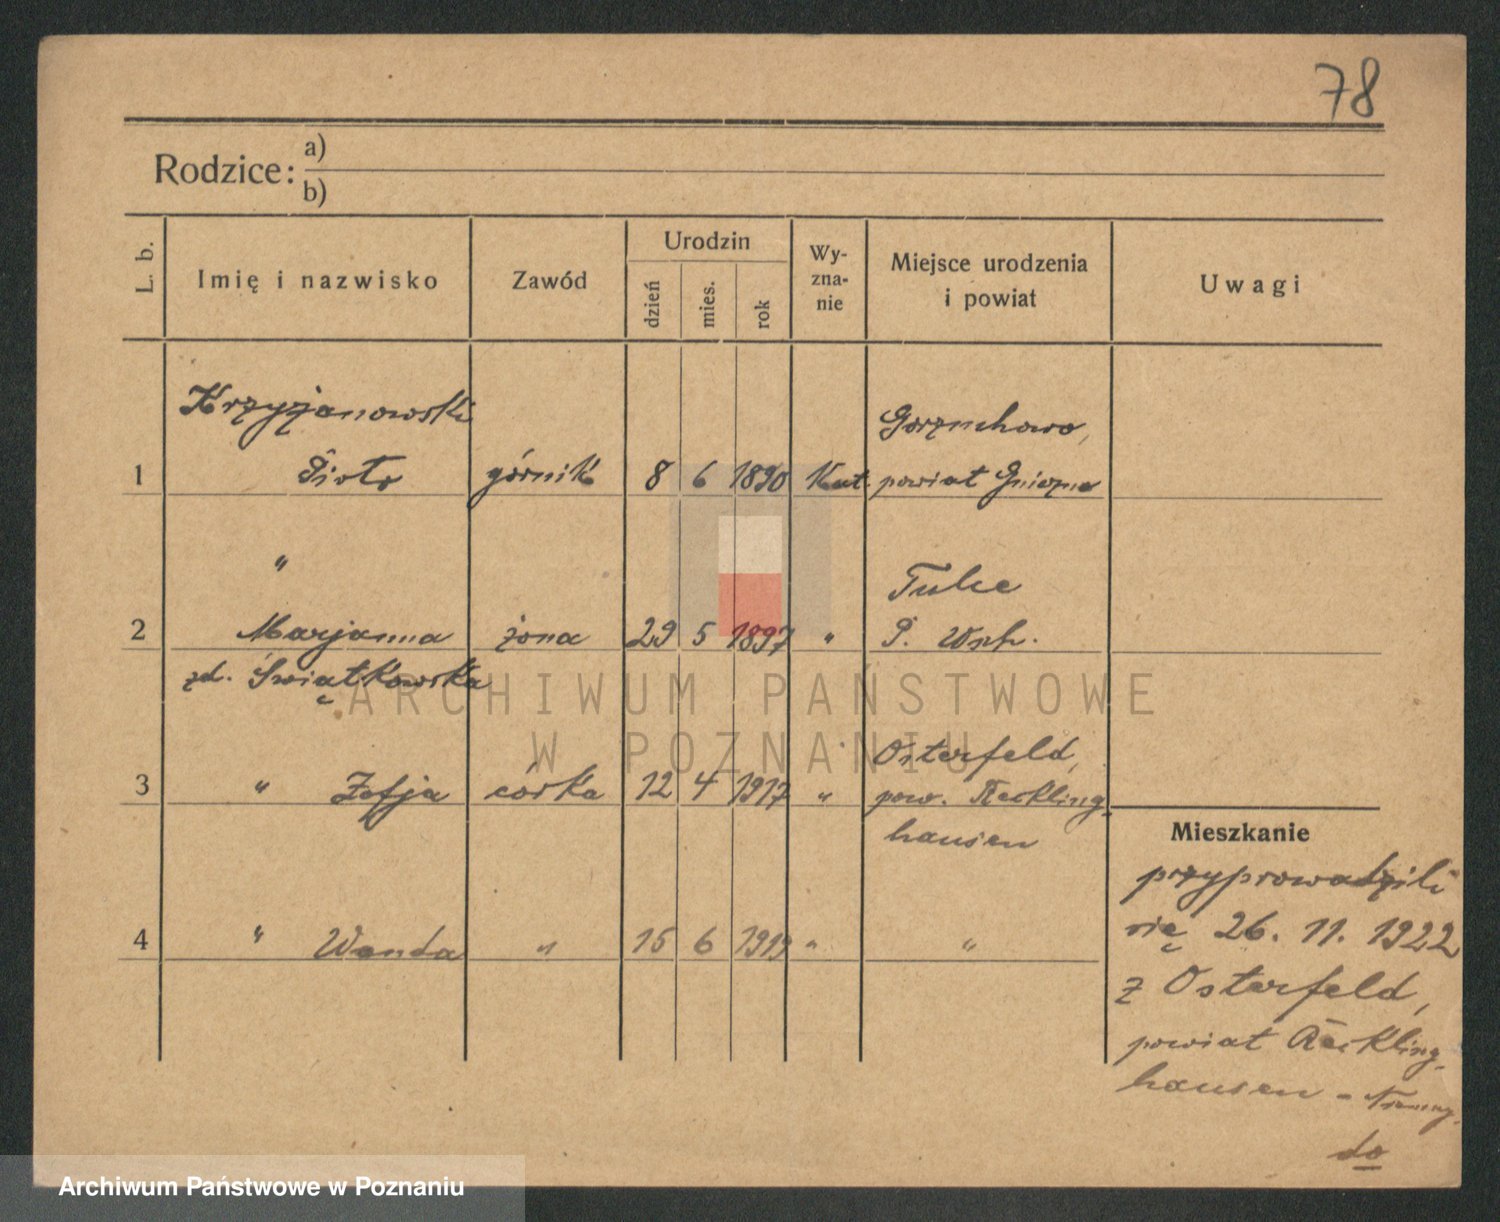 78
Rodzice: a)
b)
L. b. Imię i nazwisko Zawód Urodzin dzień mies. rok Wy-zna-nie Miejsce urodzenia i powiat Uwagi
Krzyżanowski Gorzuchowo,
1 Piotr górnik 8 6 1890 Kat. powiat Gniezno
" Tulce
2 Marjanna żona 29 5 1897 " P. Wsch.
zd. Świątkowska
Osterfeld,
3 " Zofja córka 12 4 1917 " pow. Reckling-
hausen
4 " Wanda " 15 6 1919 " "
Mieszkanie
przyprowadzili
się 26. 11. 1922
z Osterfeld,
powiat Reckling-
hausen -
do
ARCHIWUM PAŃSTWOWE
W POZNANIU
Archiwum Państwowe w Poznaniu